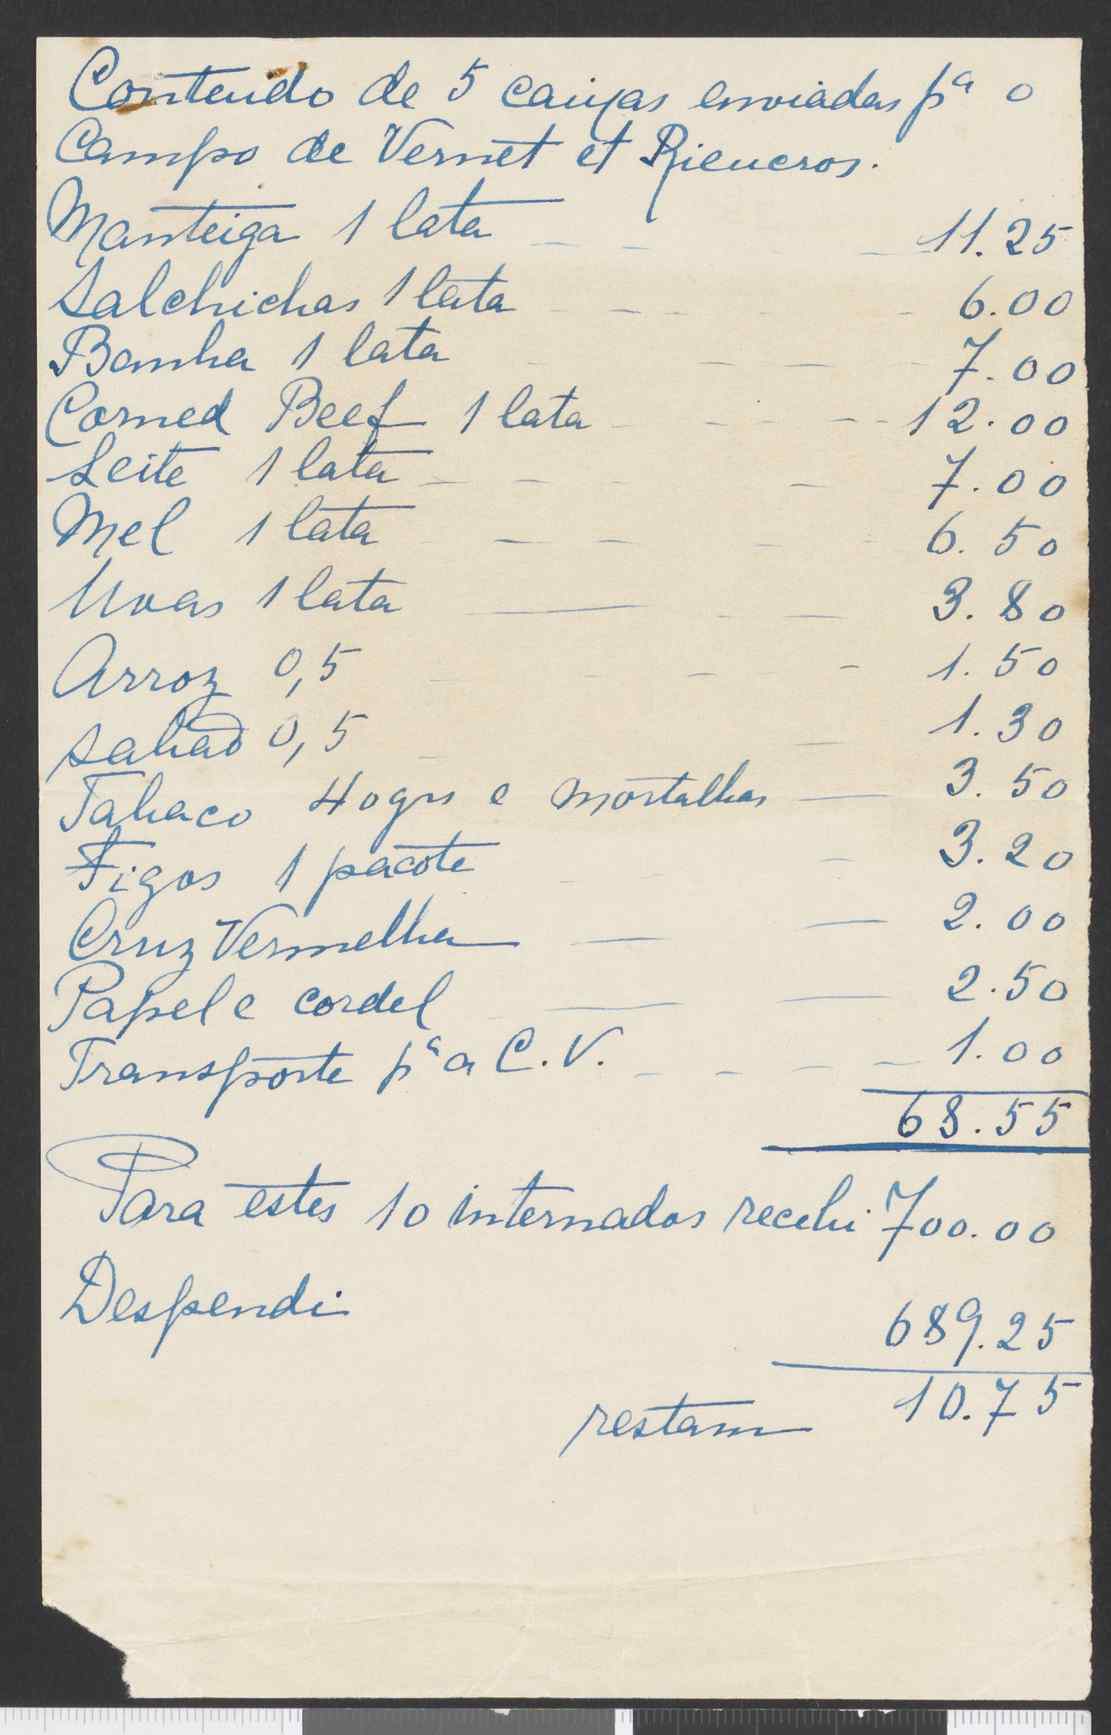 Conteudo de 5 caixas enviadas pª o
Campo de Vernet et Rieucros.
Manteiga 1 lata 11.25
Salchichas 1 lata 6.00
Banha 1 lata 7.00
Corned Beef 1 lata 12.00
Leite 1 lata 7.00
Mel 1 lata 6.50
Uvas 1 lata 3.80
Arroz 0,5 1.50
sabaõ 0,5 1.30
Tabaco 40 grs e mortalhas 3.50
Figos 1 pacote 3.20
Cruz Vermelha 2.00
Papel e cordel 2.50
Transporte pª a C.V. 1.00
68.55
Para estes 10 internados recebi 700.00
Despendi 689.25
restam 10.75